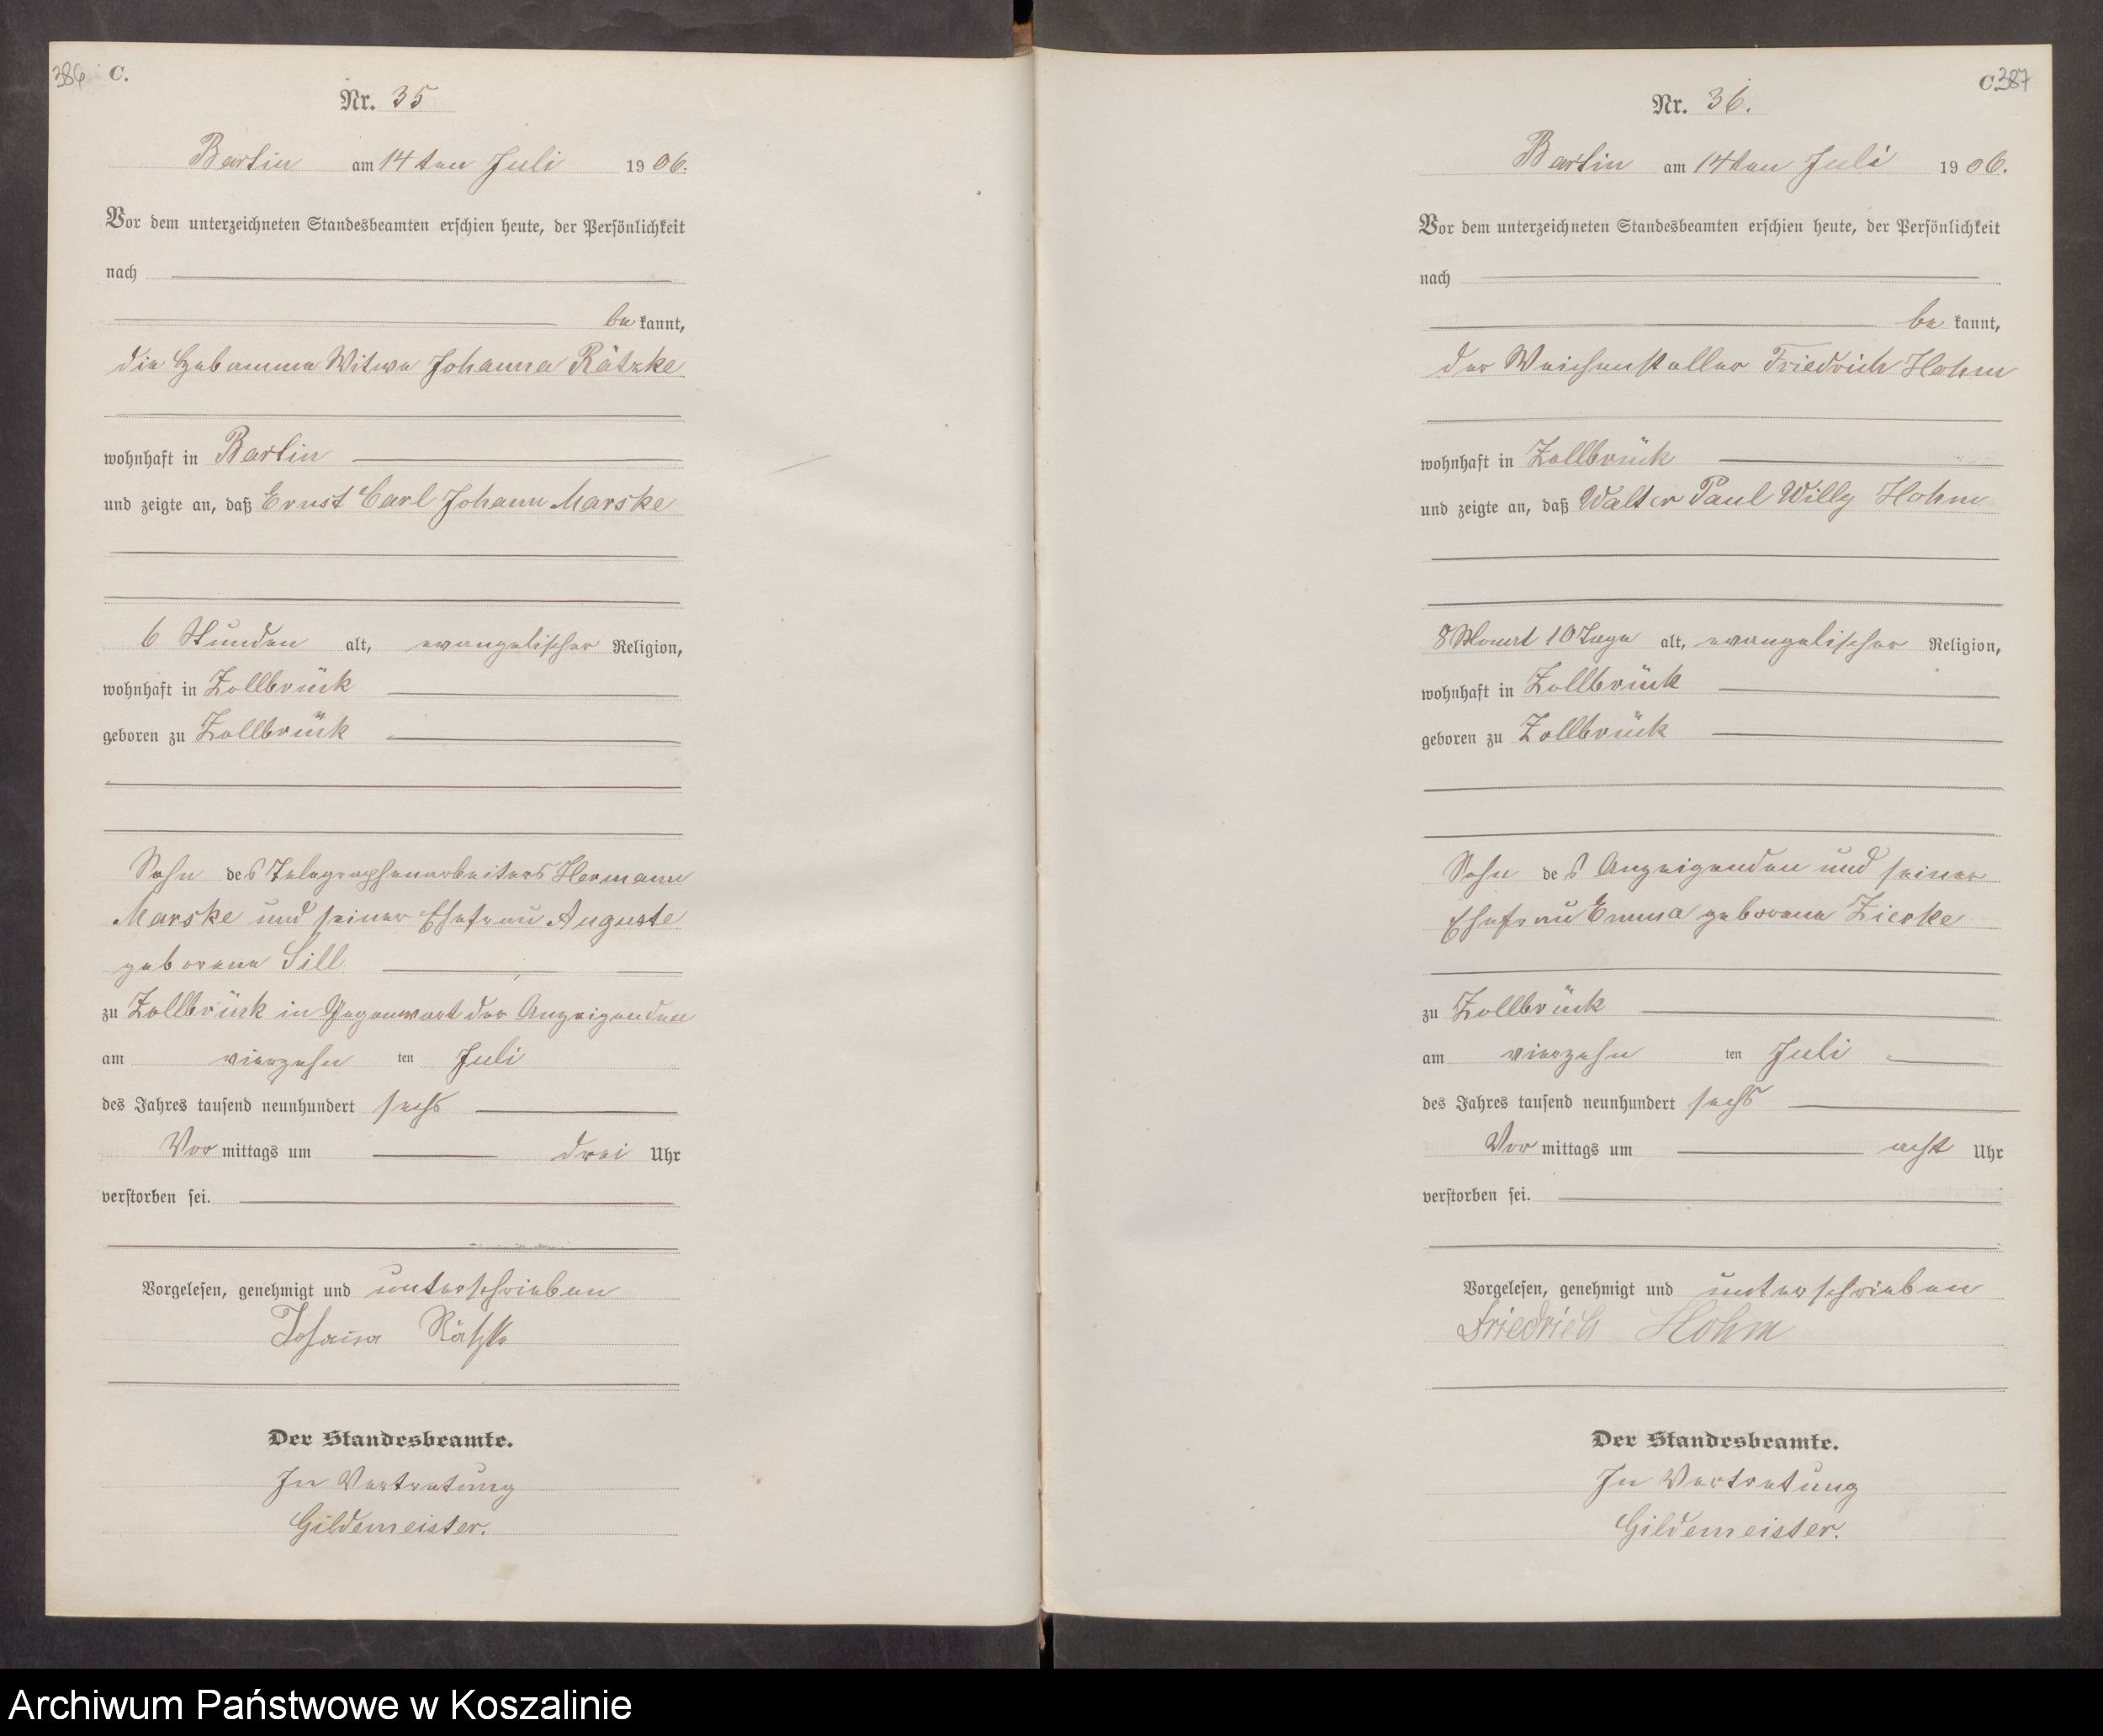 386 C.
Nr. 35
Bartin am 14ten Juli 1906.
Vor dem unterzeichneten Standesbeamten erschien heute, der Persönlichkeit
nach
be kannt,
die Hebamme Witwe Johanna Rätzke
wohnhaft in Bartin
und zeigte an, daß Ernst Carl Johann Marske
6 Stunden alt, evangelischer Religion,
wohnhaft in Zollbrück
geboren zu Zollbrück
Sohn des Telegraphenarbeiters Hermann
Marske und seiner Ehefrau Auguste
geborene Sill
zu Zollbrück in Gegenwart der Anzeigenden
am vierzehn ten Juli
des Jahres tausend neunhundert sechs
Vor mittags um drei Uhr
verstorben sei.
Vorgelesen, genehmigt und unterschrieben
Johanna Rätzke
Der Standesbeamte.
In Vertretung
Gildemeister.
C. 387
Nr. 36.
Bartin am 14ten Juli 1906.
Vor dem unterzeichneten Standesbeamten erschien heute, der Persönlichkeit
nach
be kannt,
der Weichensteller Friedrich Hohm
wohnhaft in Zollbrück
und zeigte an, daß Walter Paul Willy Hohm
8 Monat 10 Tage alt, evangelischer Religion,
wohnhaft in Zollbrück
geboren zu Zollbrück
Sohn des Anzeigenden und seiner
Ehefrau Emma geborene Zierke
zu Zollbrück
am vierzehn ten Juli
des Jahres tausend neunhundert sechs
Vor mittags um acht Uhr
verstorben sei.
Vorgelesen, genehmigt und unterschrieben
Friedrich Hohm
Der Standesbeamte.
In Vertretung
Gildemeister.
Archiwum Państwowe w Koszalinie